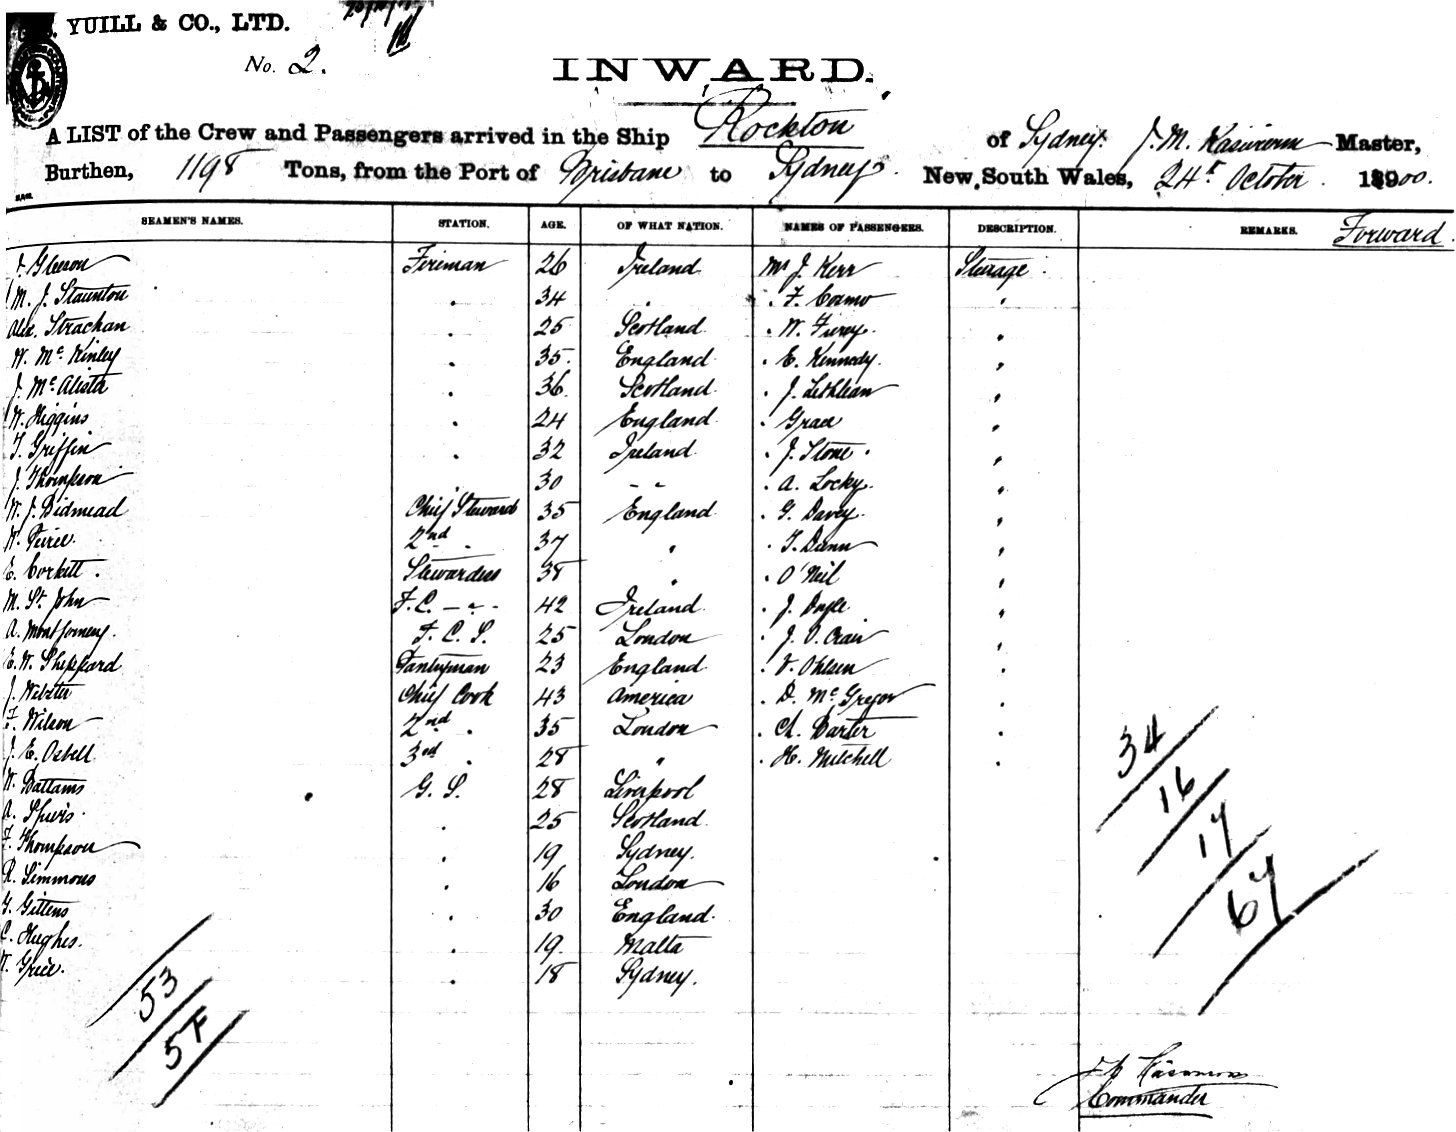 YUILL & CO., LTD.
No. 2.
INWARD.
A LIST of the Crew and Passengers arrived in the Ship Rockton of Sydney. J. M. Master,
Burthen, 1198 Tons, from the Port of Brisbane to Sydney. New South Wales, 24th October 1900.
SEAMEN'S NAMES. STATION. AGE. OF WHAT NATION. NAMES OF PASSENGERS. DESCRIPTION. REMARKS. Forward
J. Gleeson Fireman 26 Ireland Mr J. Kerr Steerage
M. J. Staunton " 34 " " F. Cosmo "
Alex. Strachan " 25 Scotland " W. Furey "
W. McKinley " 35 England " E. Kennedy "
J. McAlister " 36 Scotland " J. Lethlean "
W. Higgins " 24 England " Grace "
T. Griffin " 32 Ireland " J. Stone "
J. Thompson 30 " " " A. Locky "
W. J. Bidmead Chief Steward 35 England " G. Davey "
W. 2nd " 37 " " T. Dunn "
E. Corkett Stewardess 38 " " O'Neil "
M. St. John F.C. " 42 Ireland " J. Doyle "
A. Montgomery F. C. S. 25 London " J. O. "
E. W. Sheppard Pantryman 23 England " V. Ohlsen "
J. Webster Chief Cook 43 America " D. McGregor "
F. Wilson 2nd " 35 London " Ch. Barter "
J. E. Osbell 3rd " 28 " " H. Mitchell "
W. Battams G. S. 28 Liverpool
A. Speirs " 25 Scotland
F. Thompson " 19 Sydney
R. Simmons " 16 London
G. Gittens " 30 England
C. Hughes " 19 Malta
W. Grice " 18 Sydney
34
16
17
67
53
5F
Commander